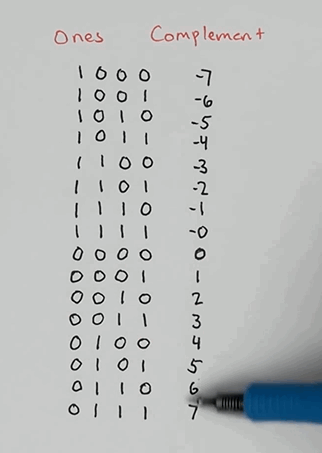 Ones Complement
1 0 0 0 -7
1 0 0 1 -6
1 0 1 0 -5
1 0 1 1 -4
1 1 0 0 -3
1 1 0 1 -2
1 1 1 0 -1
1 1 1 1 -0
0 0 0 0 0
0 0 0 1 1
0 0 1 0 2
0 0 1 1 3
0 1 0 0 4
0 1 0 1 5
0 1 1 0 6
0 1 1 1 7